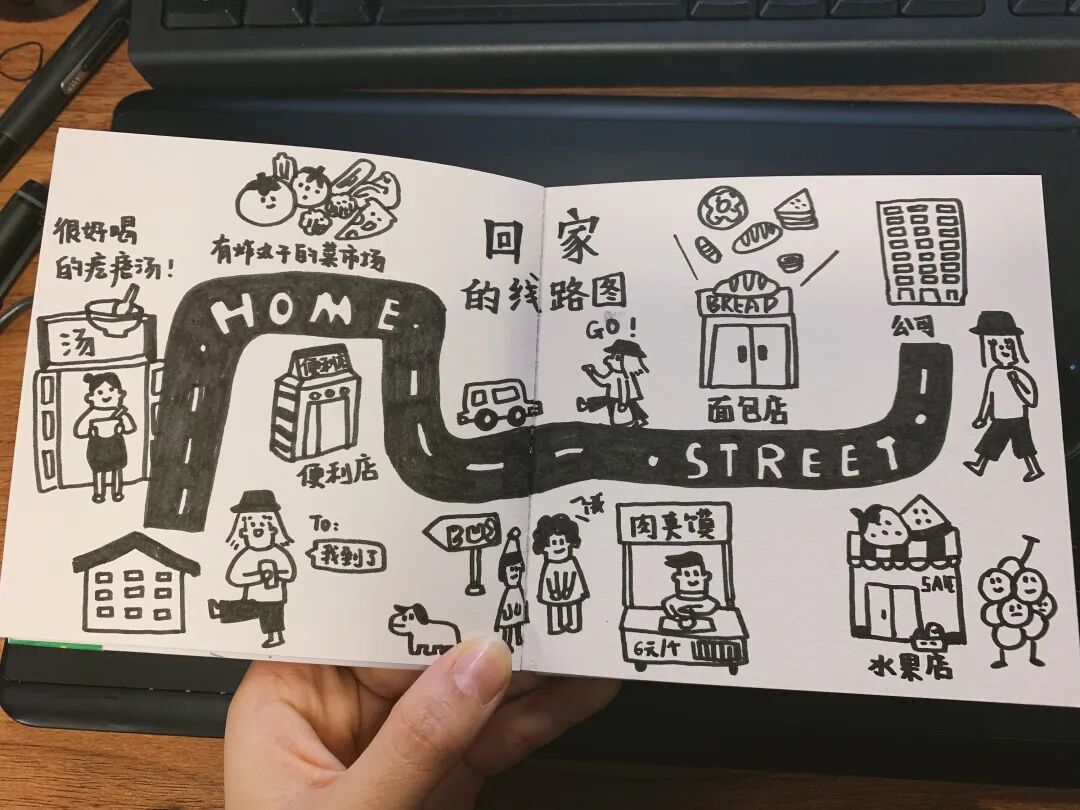 很好喝
的疙瘩汤!
有炸丸子的菜市场
回家
的线路图
GO!
BREAD
面包店
公司
汤
HOME
便利店
便利店
STREET
To:
我到了
BUS
饿
肉夹馍
6元/个
SALE
水果店